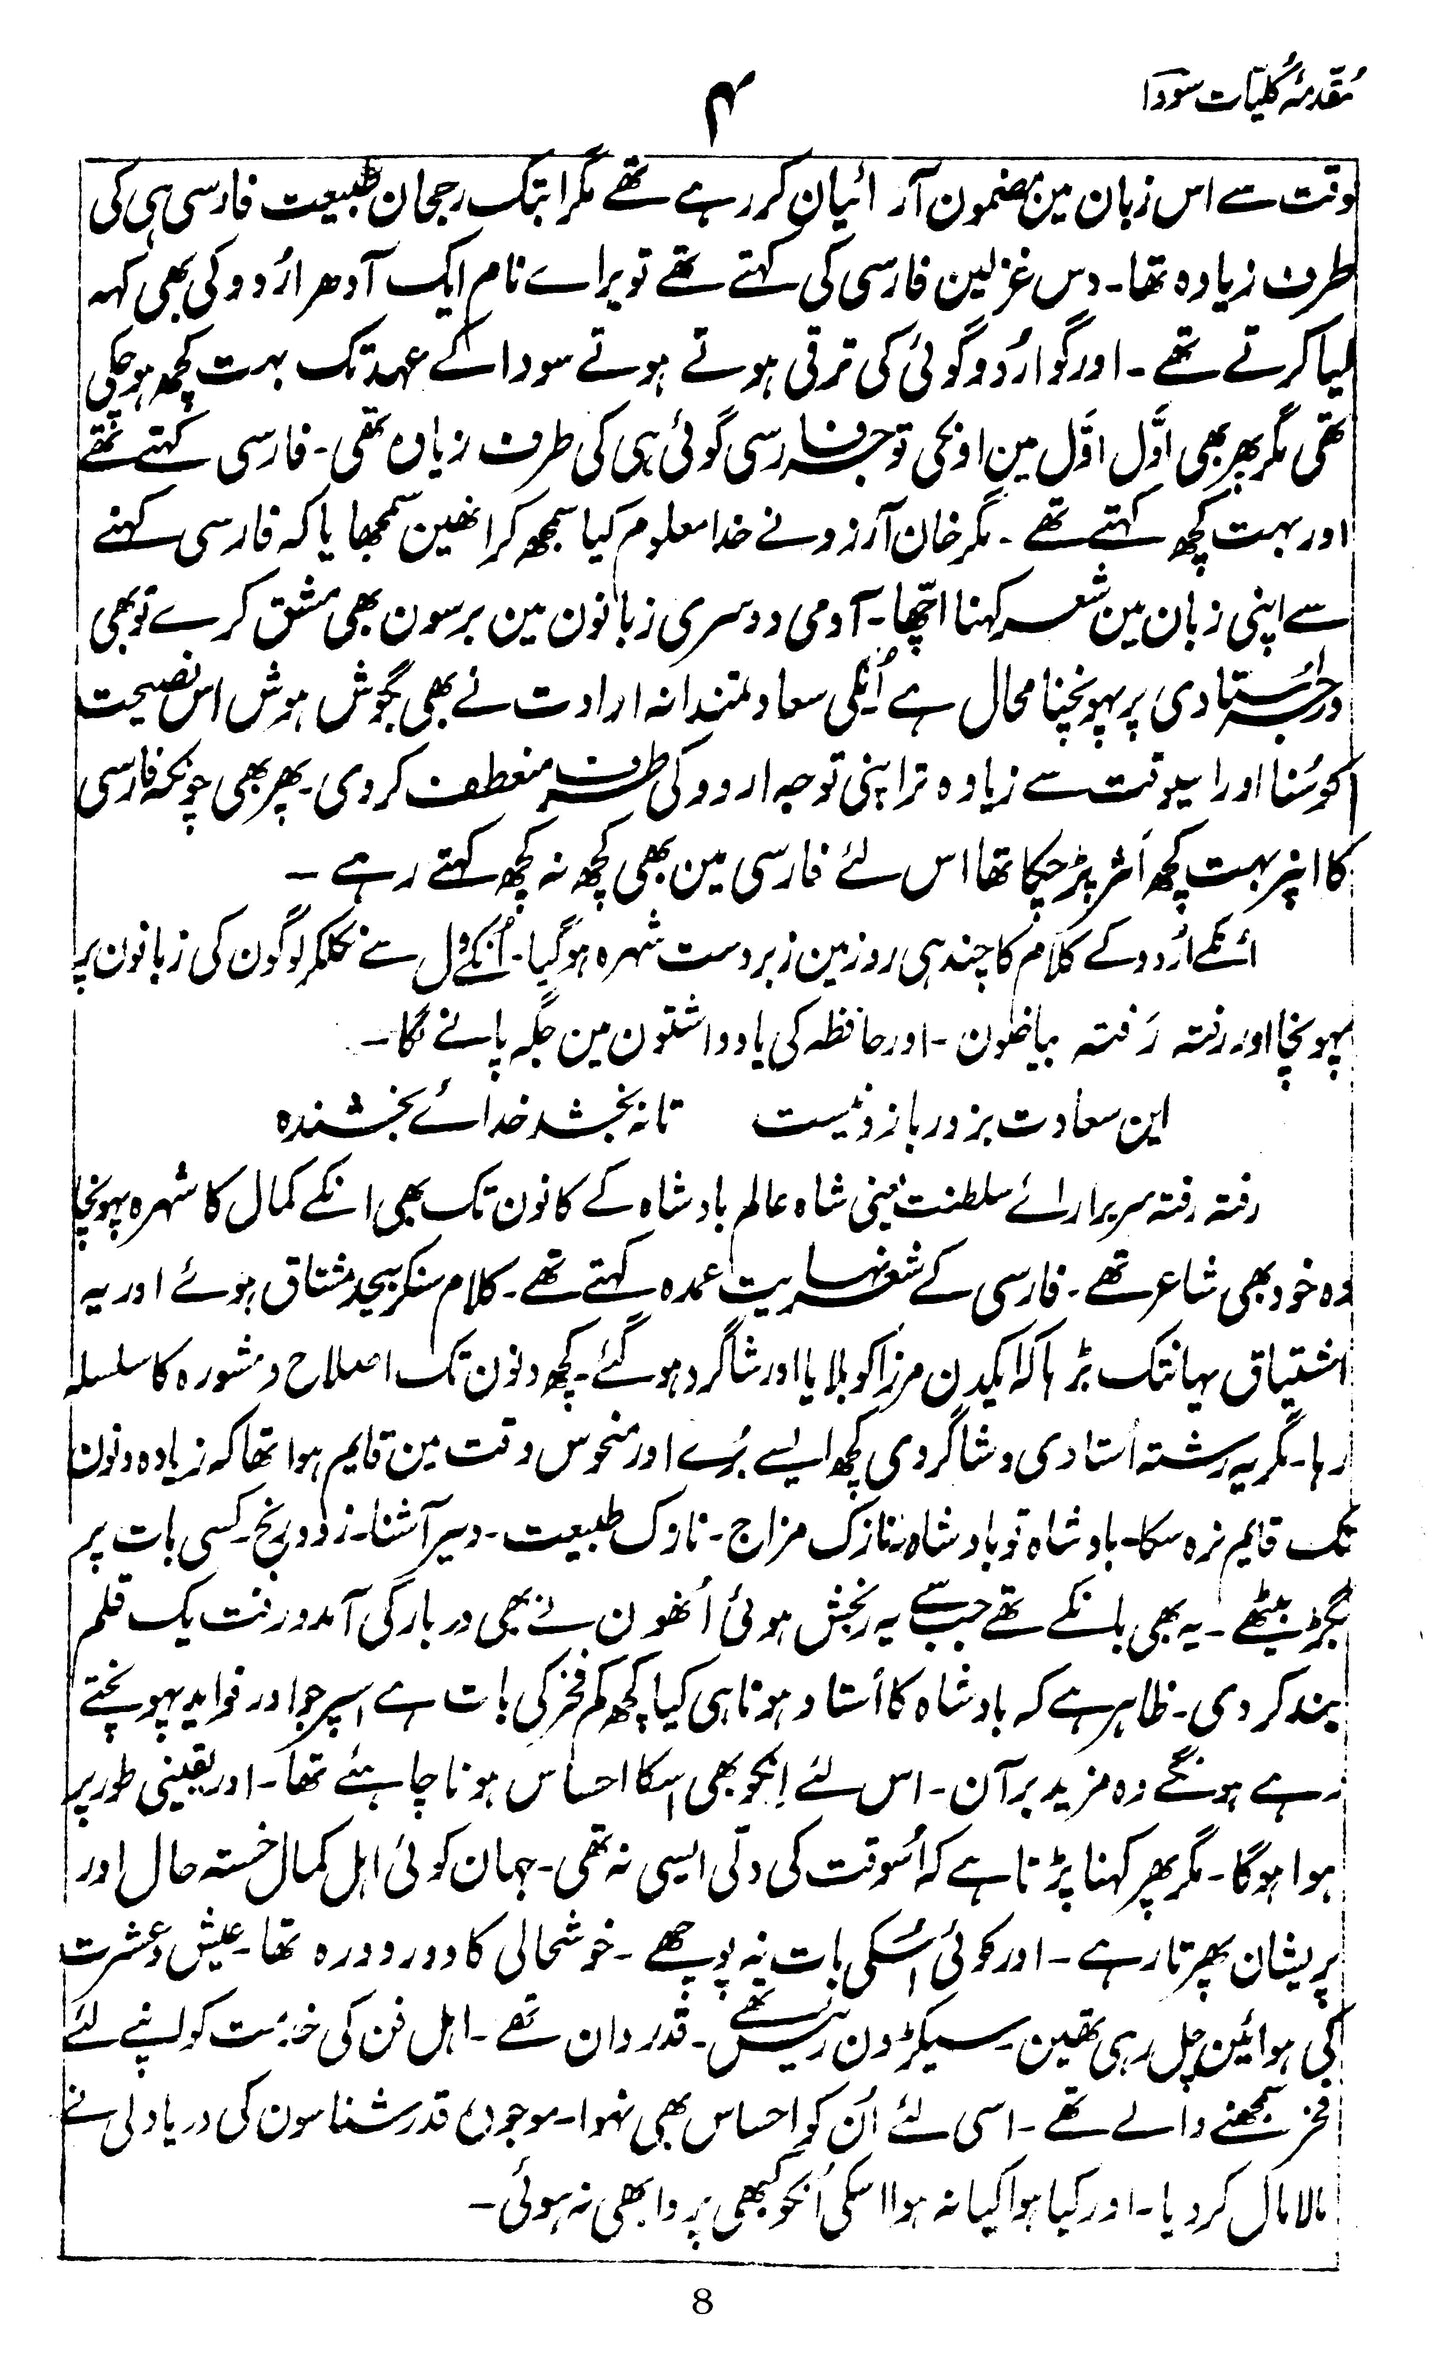 مُقدمۂ کلیات سودا
۴
وقت سے اس زبان مین مضمون آرائیان کر رہے تھے مگر ابتک رجحان طبیعت فارسی ہی کی
طرف زیادہ تھا۔ دس غزلین فارسی کی کہتے تھے تو براے نام ایک آدھر اُردو کی بھی کہہ
لیا کرتے تھے۔ اور گو اُردو گوئی کی ترقی ہوتے ہوتے سودا کے عہد تک بہت کچھ ہو چکی
تھی مگر پھر بھی اوّل اوّل مین اونکی توجہ فارسی گوئی ہی کی طرف زیادہ تھی۔ فارسی کہتے تھے
اور بہت کچھ کہتے تھے۔ مگر خان آرزو نے خدا معلوم کیا سمجھ کر انھین سمجھایا کہ فارسی کہنے
سے اپنی زبان مین شعر کہنا اچّھا۔ آدمی دوسری زبانون مین برسون بھی مشق کرے تو بھی
درجہ اُستادی پر پہونچنا محال ہے اُنکی سعادتمندانہ ارادت نے بھی بگوش ہوش اس نصیحت
کو سُنا اور اسیوقت سے زیادہ تر اپنی توجہ اردو کی طرف منعطف کر دی۔ پھر بھی چونکہ فارسی
کا انپر بہت کچھ اَثر پڑ چکا تھا اس لئے فارسی مین بھی کچھ نہ کچھ کہتے رہے ۔
اُنکے اُردو کے کلام کا چند ہی روز مین زبردست شہرہ ہو گیا۔ اُنکے دل سے نکلکر لوگون کی زبانون پر
پہونچا اور رفتہ رَفتہ بیاضون ۔ اور حافظہ کی یادداشتون مین جگہ پانے لگا ۔
این سعادت بزور بازو نیست تا نہ بخشد خدائے بخشندہ
رفتہ رفتہ سریر ارائے سلطنت یعنی شاہ عالم بادشاہ کے کانون تک بھی انکے کمال کا شہرہ پہونچا
وہ خود بھی شاعر تھے ۔ فارسی کے شعر نہایت عمدہ کہتے تھے ۔ کلام سنکر بیحد مشتاق ہوئے اور یہ
اشتیاق یہانتک بڑہا کہ ایکدن مرزا کو بلایا اور شاگرد ہو گئے۔ کچھ دنون تک اصلاح و مشورہ کا سلسلہ
رہا۔ مگر یہ رشتہ اُستادی و شاگردی کچھ ایسے بُرے اور منحوس وقت مین قایم ہوا تھا کہ زیادہ دنون
تک قایم نرہ سکا۔ بادشاہ تو بادشاہ نازک مزاج ۔ ناوک طبیعت ۔ دیر آشنا۔ زود رنج۔ کسی بات پر
بگڑ بیٹھے ۔ یہ بھی بانکے تھے جب سے یہ رنجش ہوئی اُنھون نے بھی دربار کی آمد و رفت یک قلم
بند کر دی۔ ظاہر ہے کہ بادشاہ کا اُستاد ہونا ہی کیا کچھ کم فخر کی بات ہے اسپر جو اور فواید پہونچتے
رہے ہونگے وہ مزید برآن ۔ اس لئے اِنکو بھی اسکا احساس ہونا چاہئے تھا ۔ اور یقینی طور پر
ہوا ہوگا ۔ مگر پھر کہنا پڑتا ہے کہ اُسوقت کی دلّی ایسی نہ تھی ۔ جہان کوئی اہل کمال خستہ حال اور
پریشان پھرتا رہے ۔ اور کوئی اُسکی بات نہ پوچھے ۔ خوشحالی کا دور دورہ تھا ۔ عیش و عشرت
کی ہوائین چل رہی تھین۔ سیکڑون رئیس تھے ۔ قدردان تھے ۔ اہل فن کی خدمت کو اپنے لئے
فخر سمجھنے والے تھے ۔ اسی لئے اُن کو احساس بھی نہوا۔ موجودہ قدرشناسون کی دریا دلی نے
مالا مال کر دیا ۔ اور کیا ہوا کیا نہ ہوا اسکی اُنکو کبھی پروا بھی نہ ہوئی ۔
8